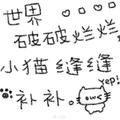 世界
破破烂烂
小猫缝缝
补补。
yep!
owo